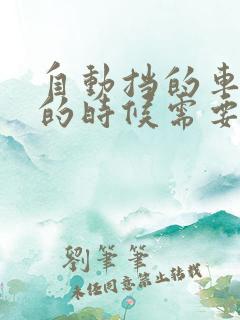 自動挡的車
的時候需要
劉筆筆
未经同意禁止转载